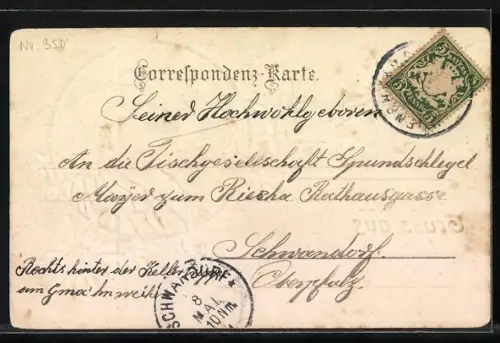 Nr. 350
Correspondenz-Karte.
Seiner Hochwohlgeboren
An die Tischgesellschaft Spundschlegel
Mayer zum Rathausgasse
Schwandorf
Oberpfalz
Rechts hinter der Keller
am
SCHWANDORF
8
MAI
10 Nm.
5
Gruss aus